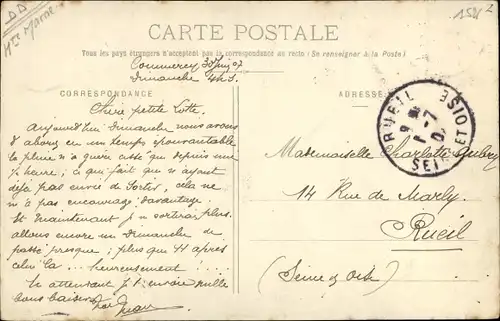 DD
Hte Marne
CARTE POSTALE
Tous les pays étrangers n'acceptent pas la correspondance au recto (Se renseigner à la Poste)
Commercy 30 Juin 07
Dimanche 4h.s.
CORRESPONDANCE
ADRESSE
Chère petite Lotte
Aujourd'hui Dimanche nous avons
d'abord eu un temps épouvantable
la pluie n'a guère cessé que depuis une
½ heure; ce qui fait que si ayant
déjà pas envie de sortir, cela ne
m'a pas encouragé davantage.
Et maintenant je ne sortirai plus.
allons encore un Dimanche de
passé presque; plus que 41 après
celui là ... heureusement!
En attendant je t'envoie mille
bons baisers
RUEIL
SEINE ET OISE
Mademoiselle Charlotte Aubry
14 Rue de Marly
Rueil
(Seine & Oise)